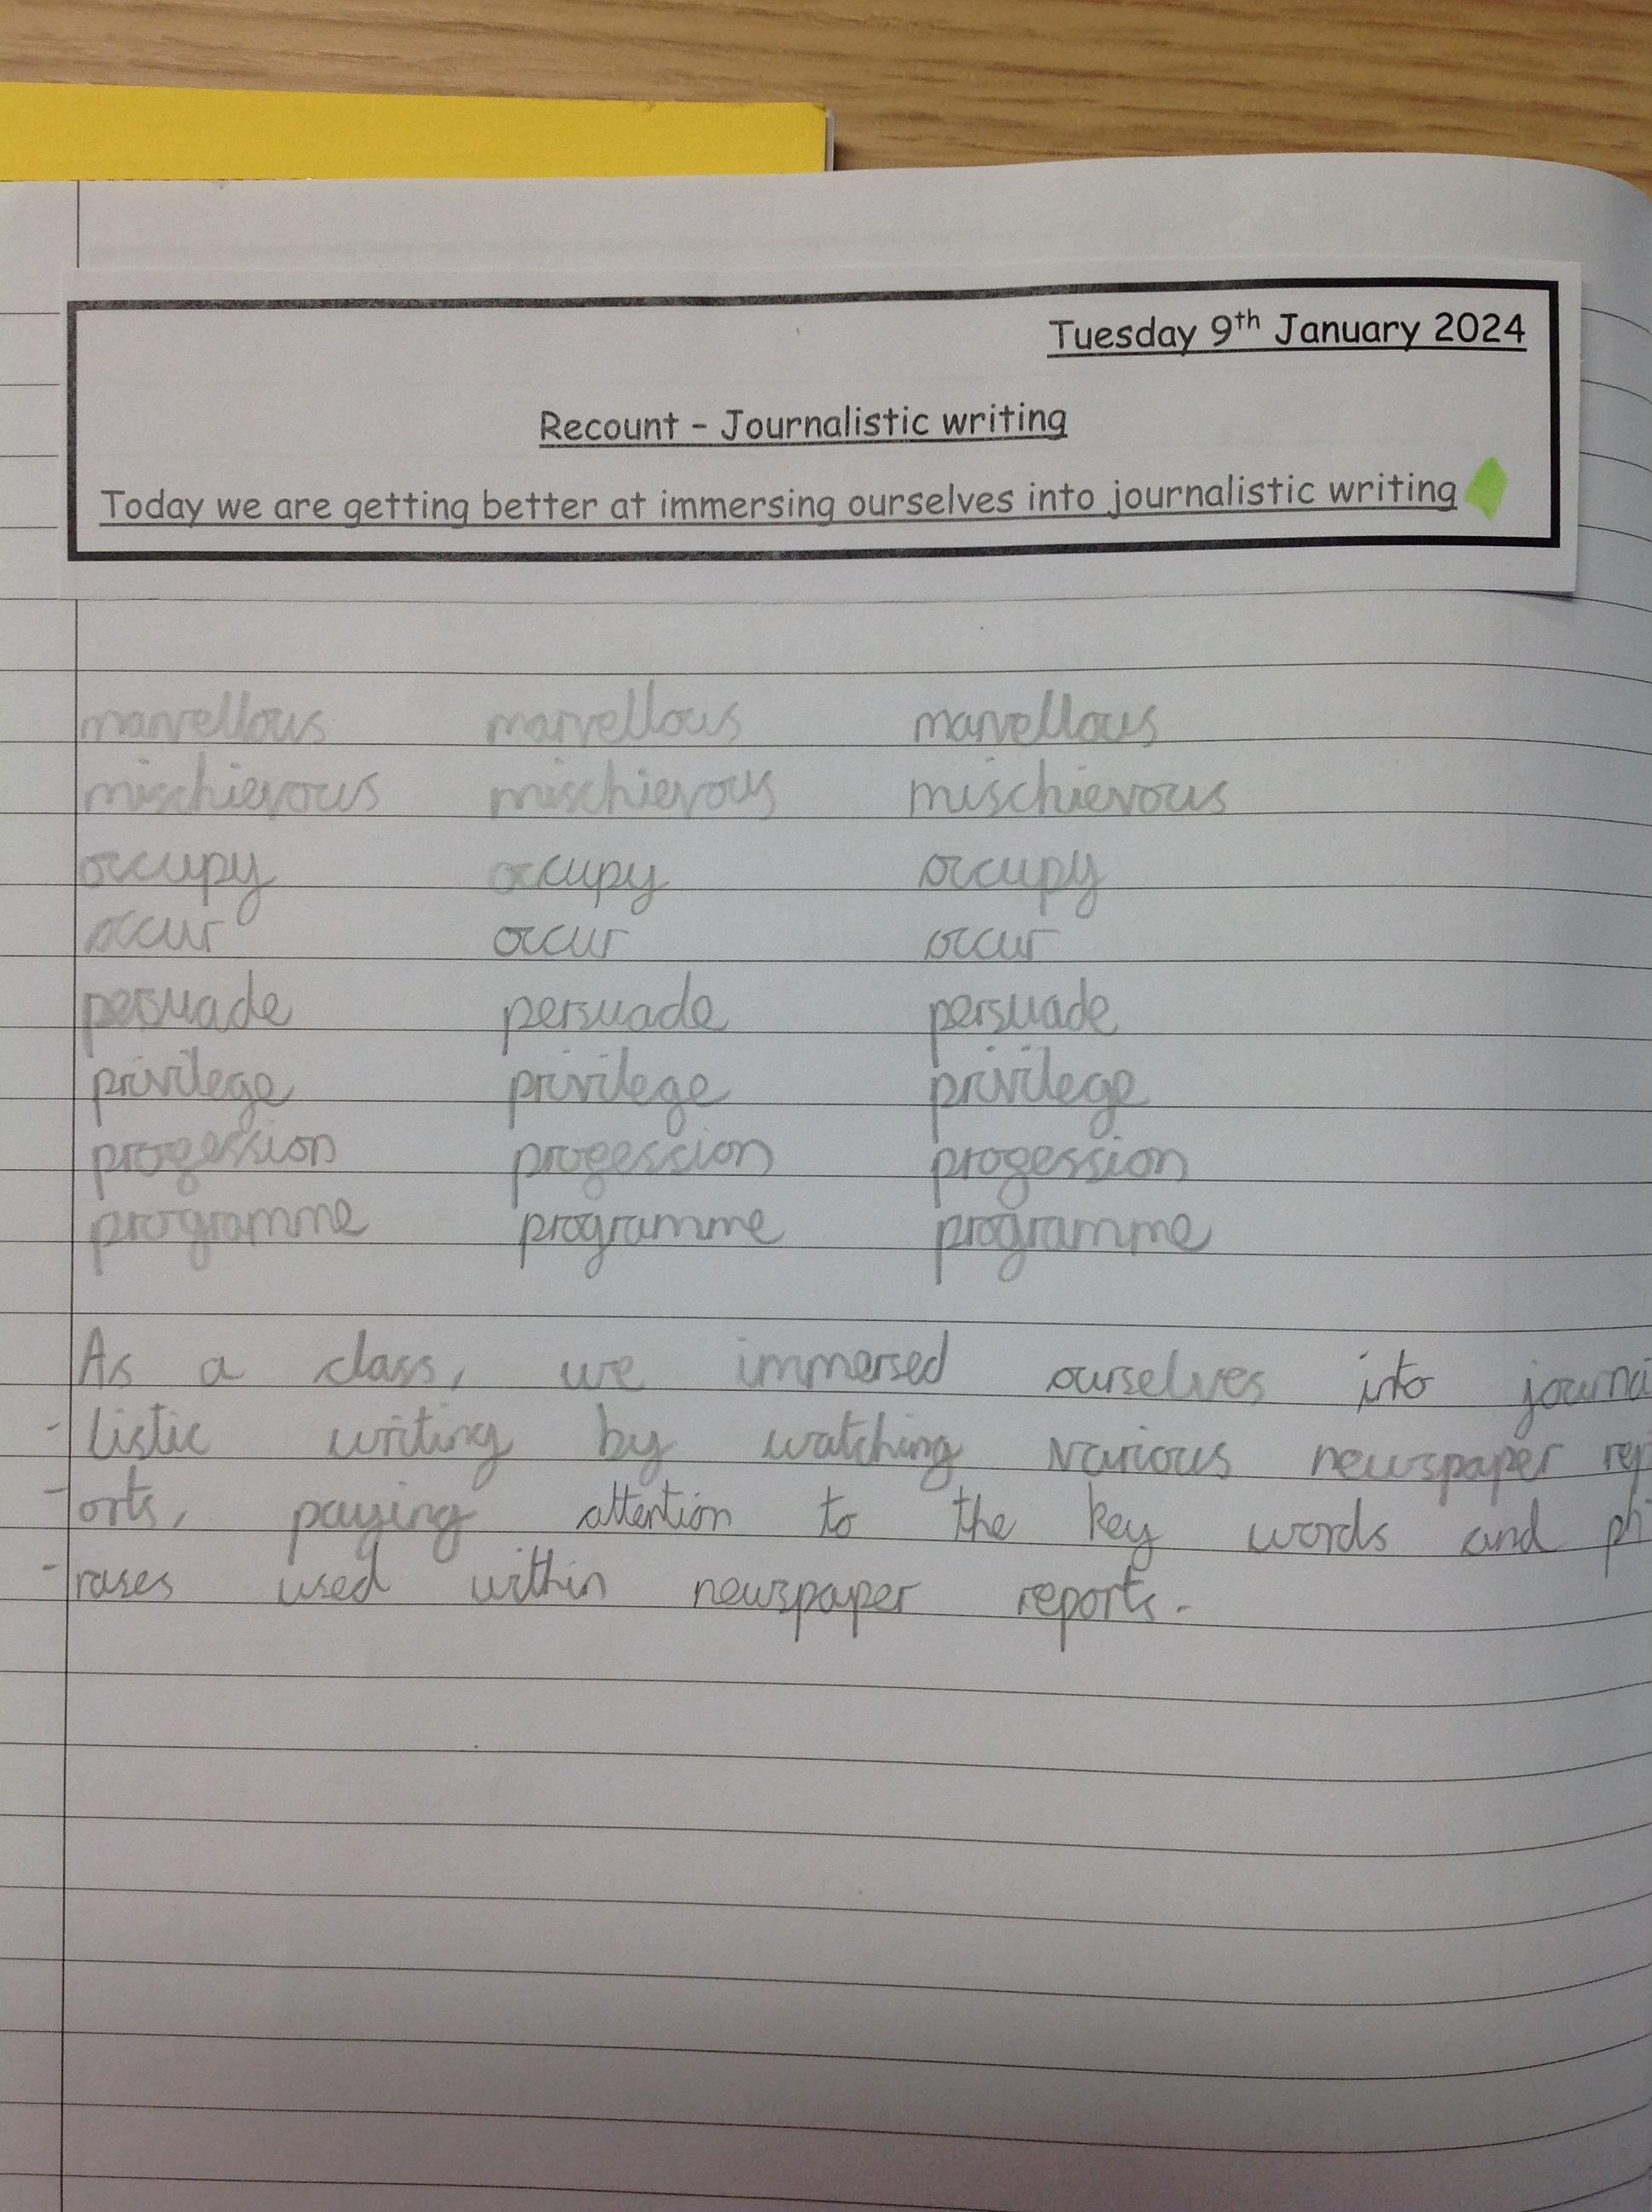 Tuesday 9th January 2024
Recount - Journalistic writing
Today we are getting better at immersing ourselves into journalistic writing
marvellous marvellous marvellous
mischievous mischievous mischievous
occupy occupy occupy
occur occur occur
persuade persuade persuade
privilege privilege privilege
progession progession progession
programme programme programme
As a class, we immersed ourselves into journa
-listic writing by watching various newspaper rep
-orts, paying attention to the key words and ph
-rases used within newspaper reports.